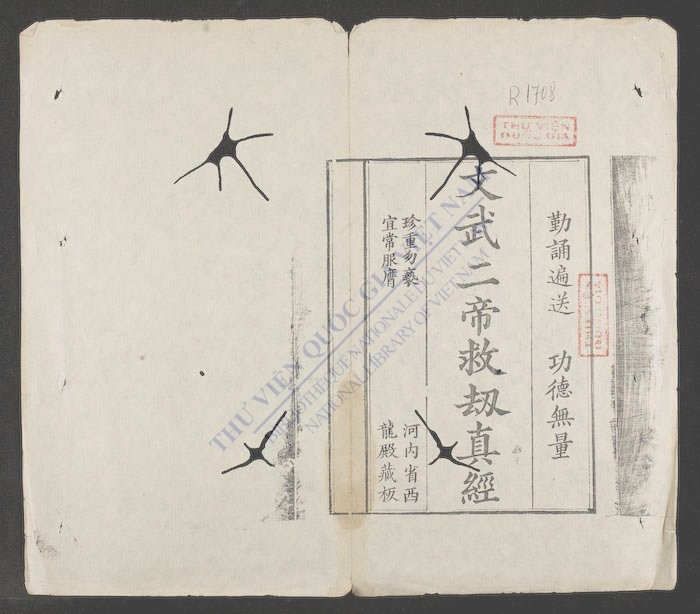 R.1708
THƯ VIỆN
QUỐC GIA
勤誦遍送 功德無量
文武二帝救劫真經
珍重勿褻
宜常服膺
河内省西
龍殿藏板
THƯ VIỆN QUỐC GIA VIỆT NAM
BIBLIOTHÈQUE NATIONALE DU VIETNAM
NATIONAL LIBRARY OF VIETNAM